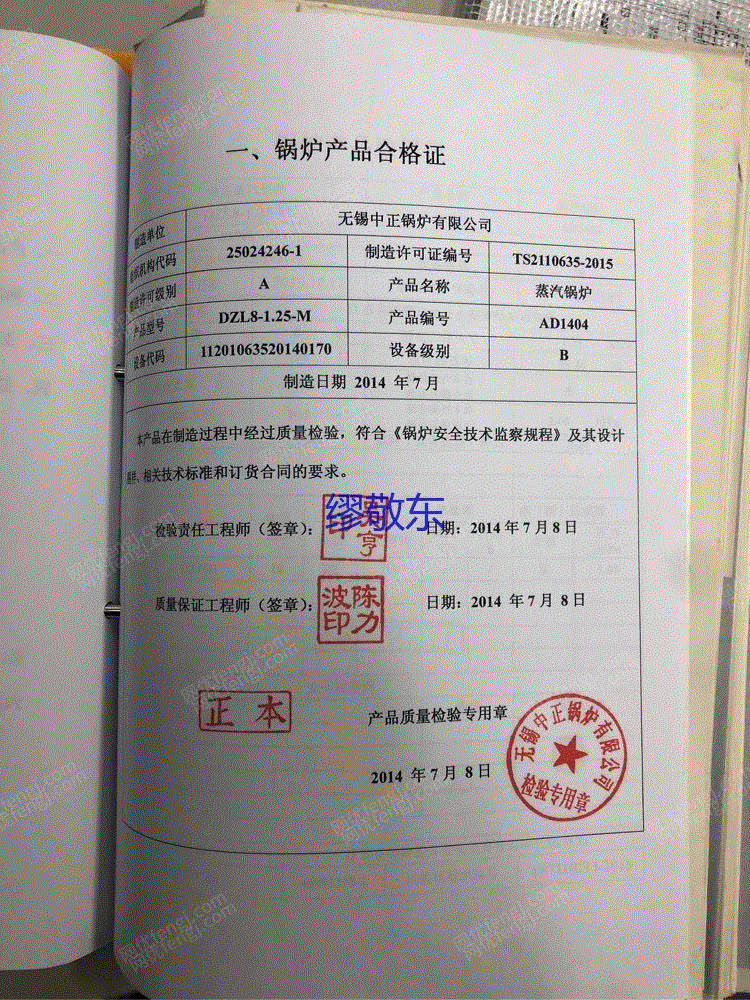 一、锅炉产品合格证
制造单位 无锡中正锅炉有限公司
组织机构代码 25024246-1 制造许可证编号 TS2110635-2015
制造许可级别 A 产品名称 蒸汽锅炉
产品型号 DZL8-1.25-M 产品编号 AD1404
设备代码 11201063520140170 设备级别 B
制造日期 2014 年 7 月
本产品在制造过程中经过质量检验，符合《锅炉安全技术监察规程》及其设计
图样、相关技术标准和订货合同的要求。
缪敬东
检验责任工程师（签章）： 印 亨 日期：2014 年 7 月 8 日
质量保证工程师（签章）： 陈力波印 日期：2014 年 7 月 8 日
正本
产品质量检验专用章
2014 年 7 月 8 日
无锡中正锅炉有限公司
检验专用章